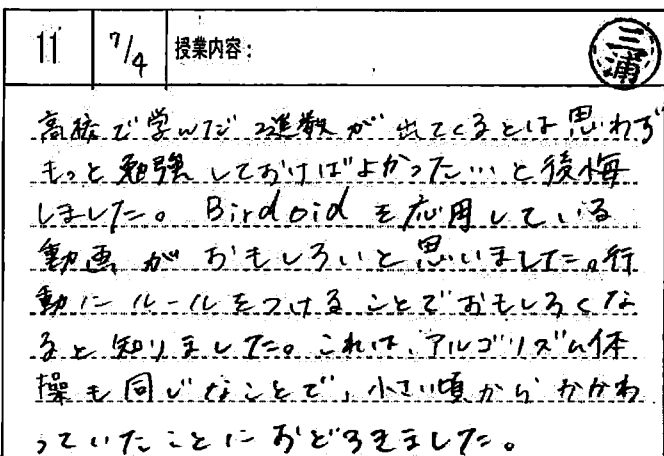 11 7/4 授業内容: 三浦
高校で学んだ2進数が出てくるとは思わず
もっと勉強しておけばよかった…と後悔
しました。Birdoidを応用している
動画がおもしろいと思いました。行
動にルールをつけることでおもしろくな
ると知りました。これは、アルゴリズム体
操も同じなことで、小さい頃からかかわ
っていたことにおどろきました。